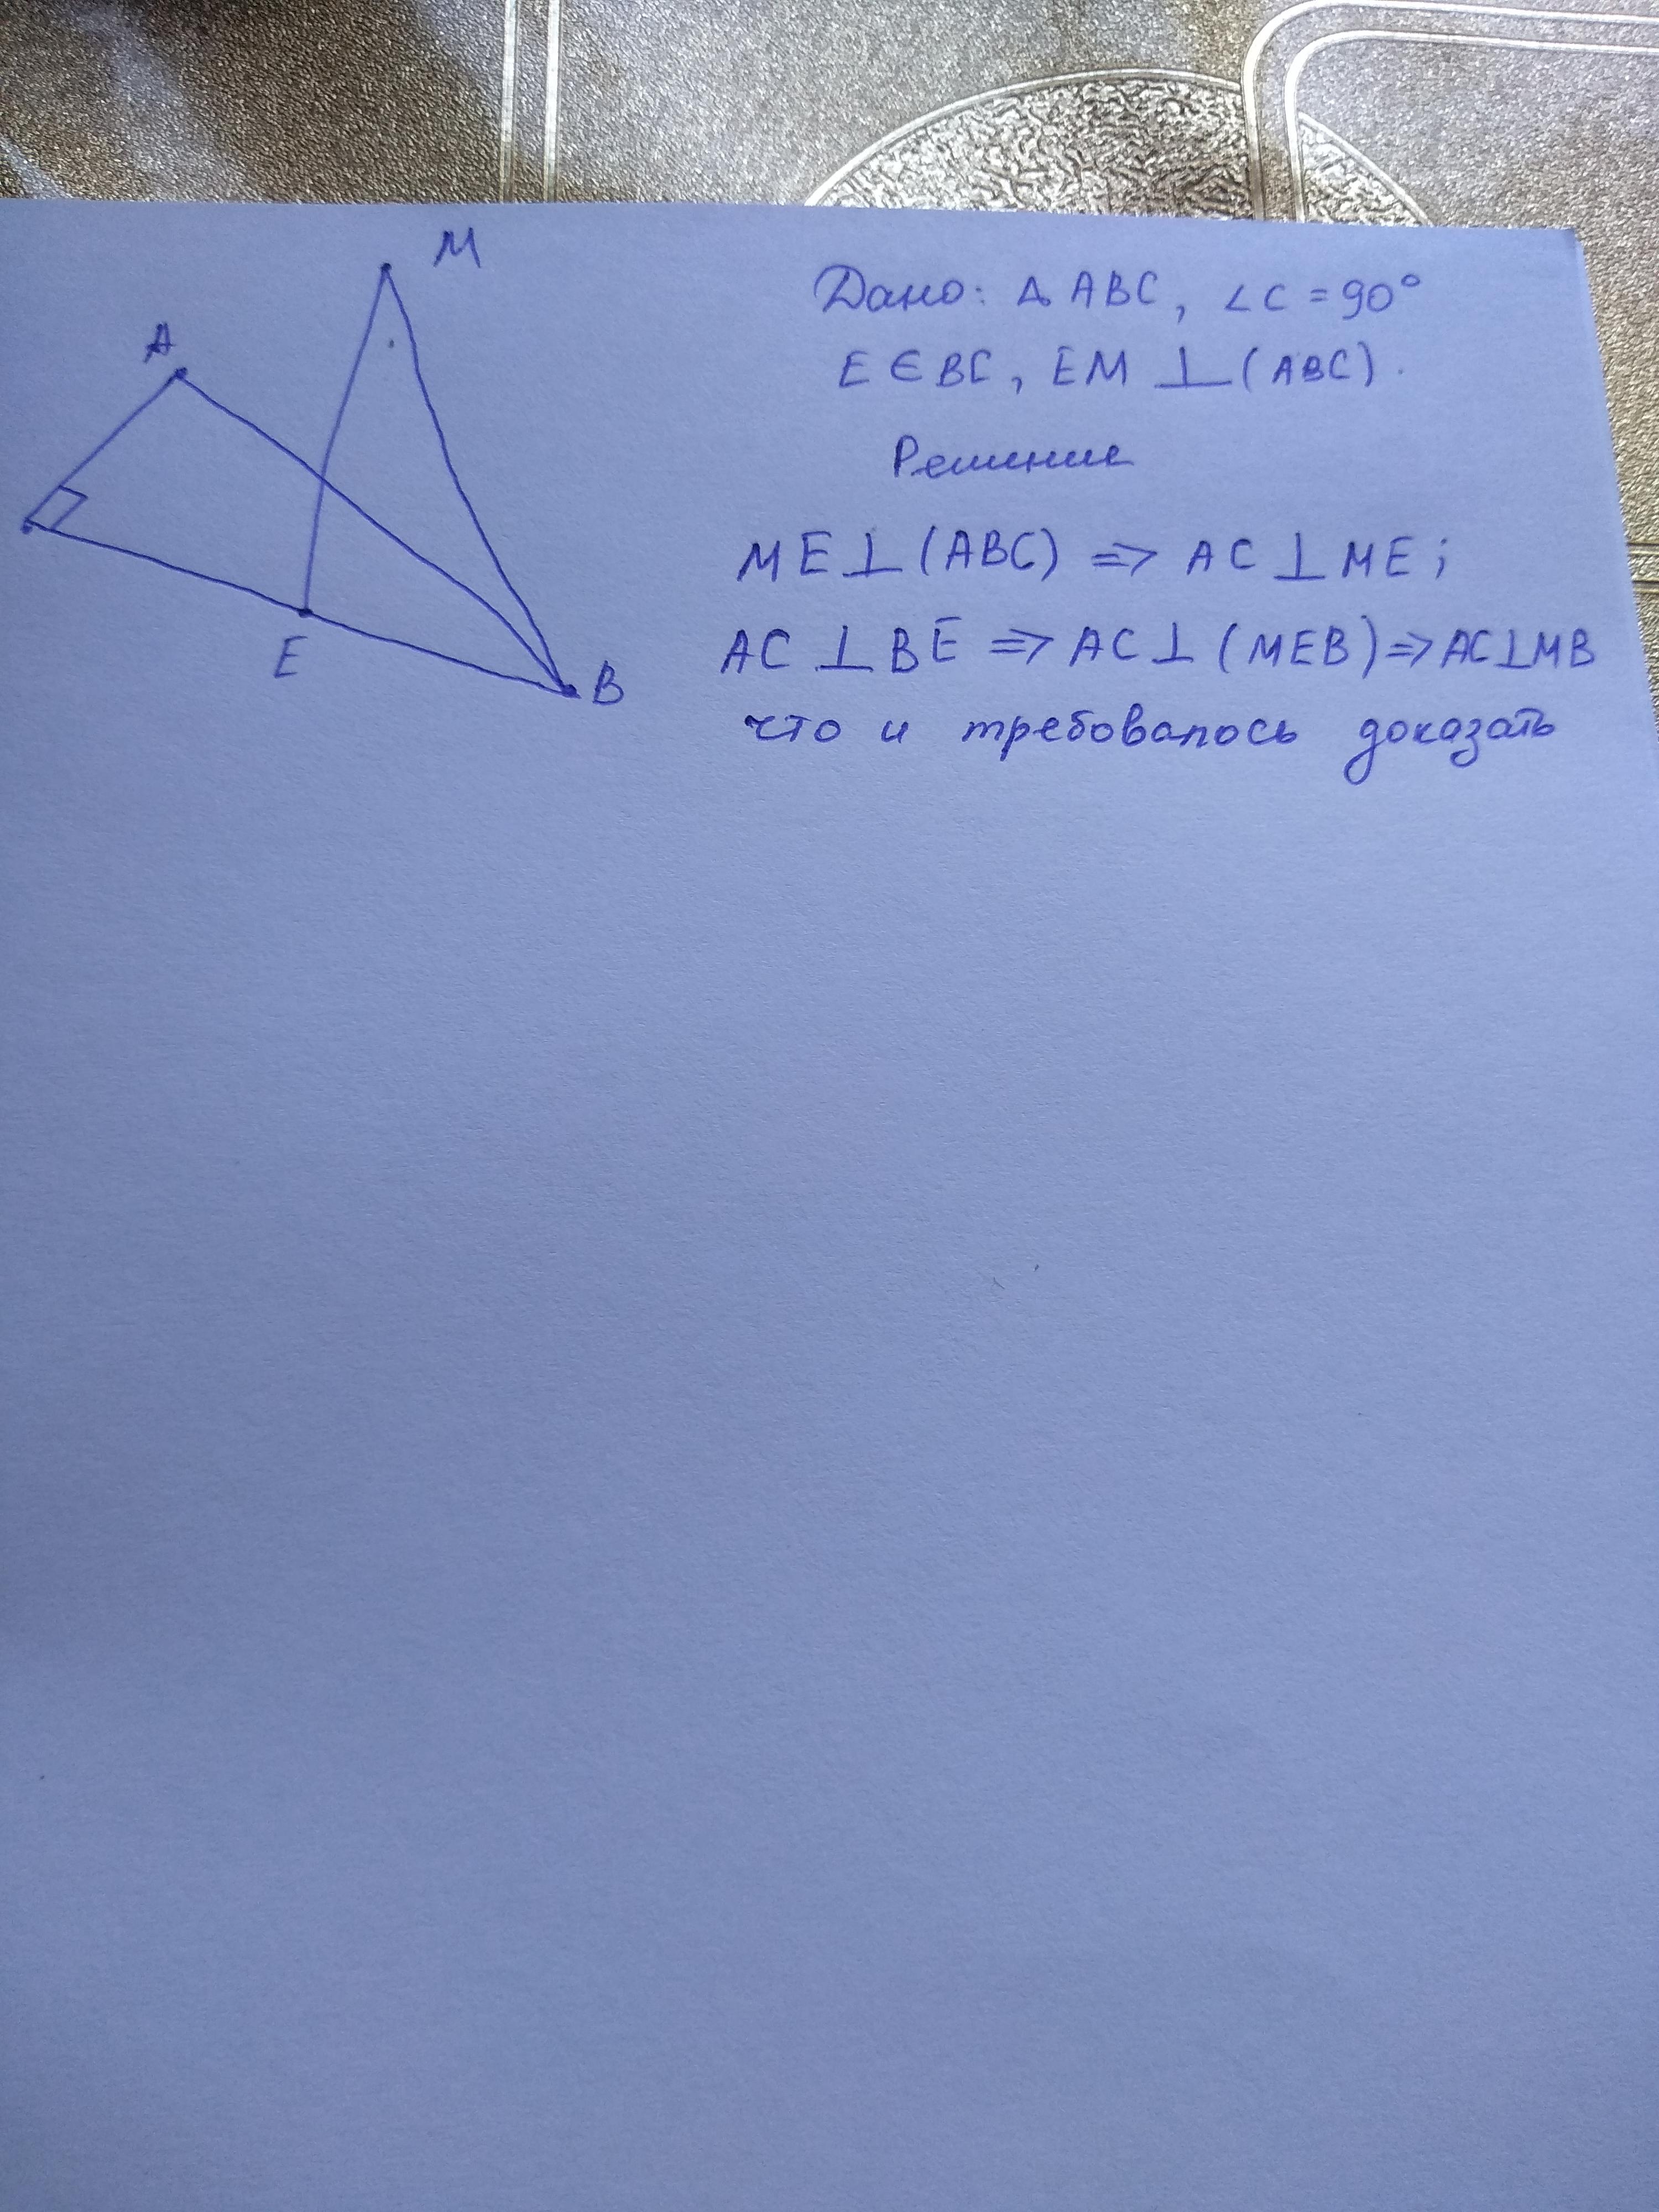 M
A
E
B
Дано: △ ABC, ∠C = 90°
E ∈ BC, EM ⊥ (ABC).
Решение
ME ⊥ (ABC) => AC ⊥ ME;
AC ⊥ BE => AC ⊥ (MEB) => AC⊥MB
что и требовалось доказать